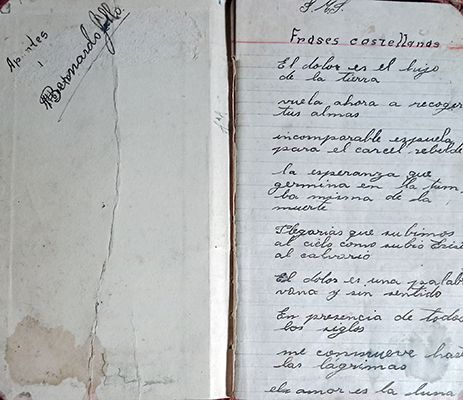 Apuntes
Bernardo
J.M.J.
Frases castellanas
El dolor es el hijo
de la tierra
vuela ahora a recoger
tus almas
incomparable espuela
para el carcel rebelde
la esperanza que
germina en la tum
ba misma de la
muerte
Plegarias que subimos
al cielo como subio Cris
al calvario
El dolor es una palab
vana y sin sentido
En presencia de todo
los siglos
me conmueve hast
las lágrimas
el amor es la luna